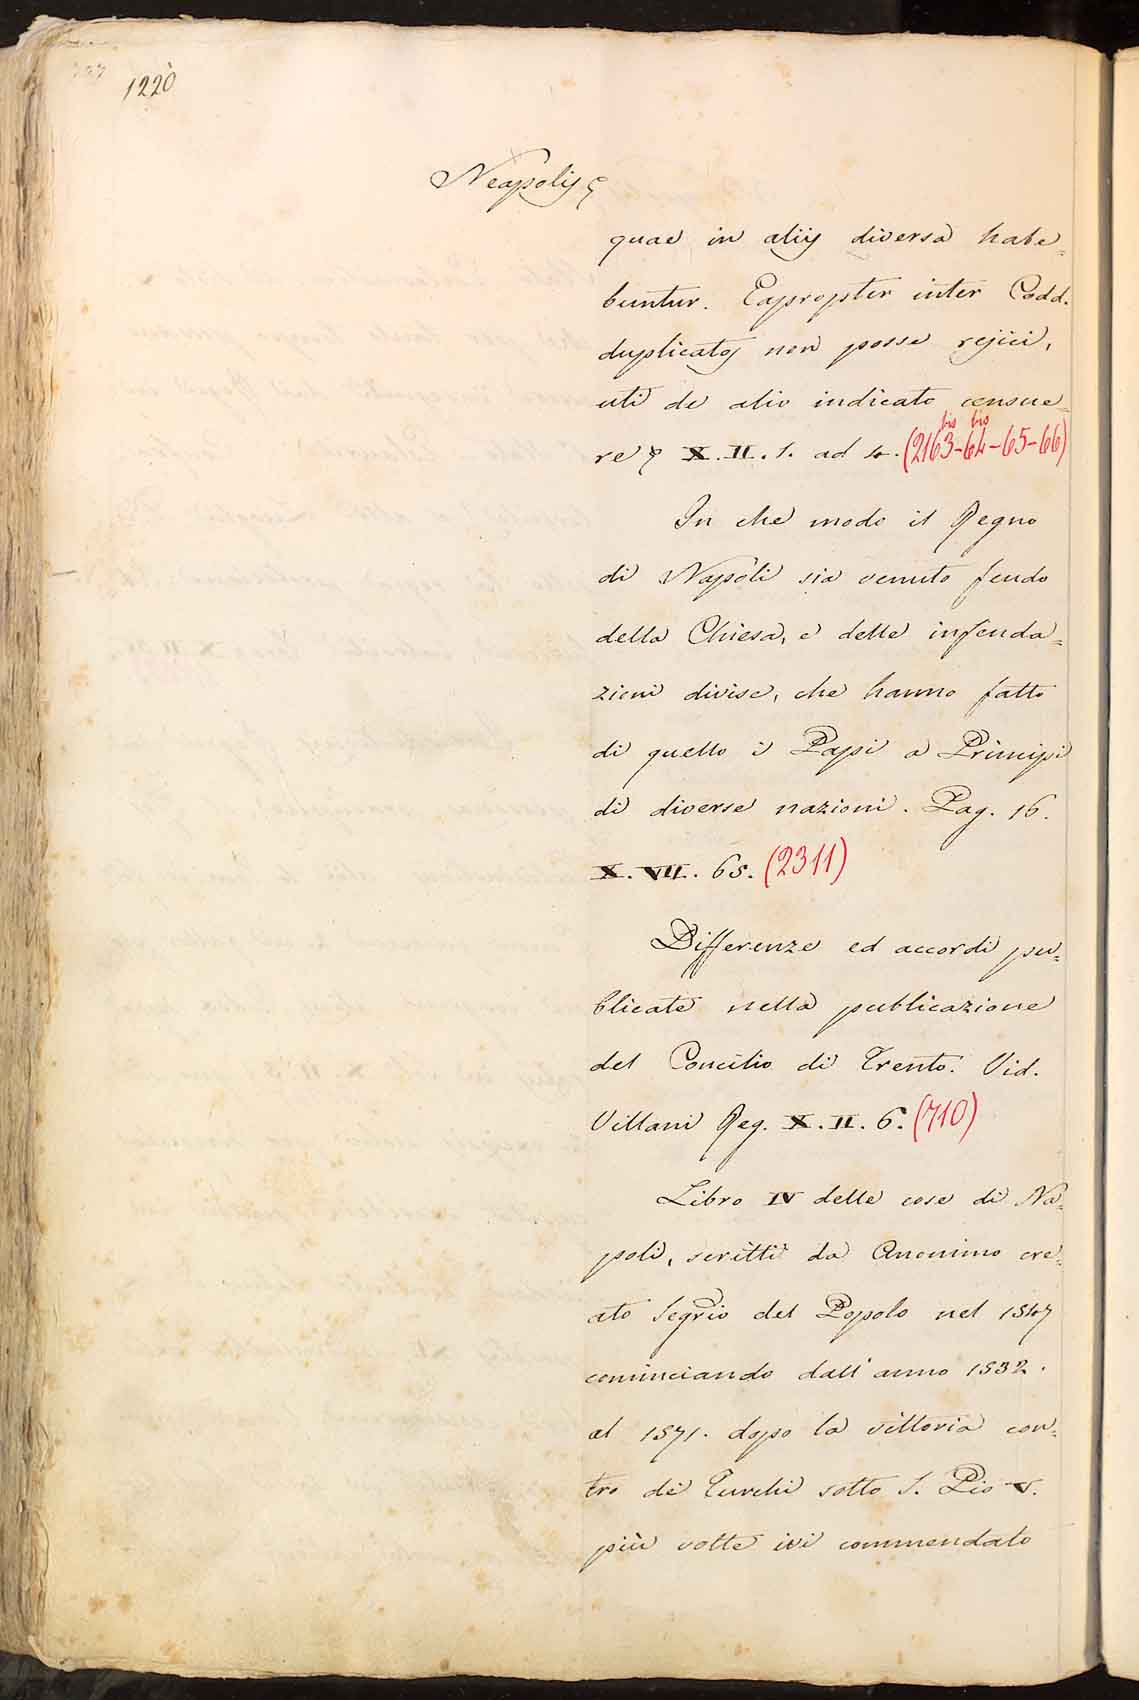 1220
Neapolis
quae in aliis diversa habe=
buntur. Eapropter inter Codd.
duplicatos non posse rejici,
uti de alio indicato censue=
re X. II. 1. ad 4. (2163 bis-64 bis-65-66)
In che modo il Regno
di Napoli sia venuto feudo
della Chiesa, e delle infeuda=
zioni divise, che hanno fatto
di quello i Papi a Principi
di diverse nazioni. Pag. 16.
X. VII. 65. (2311)
Differenze ed accordi pu=
blicate nella publicazione
del Concilio di Trento. Vid.
Villani Reg. X. II. 6. (710)
Libro IV delle cose di Na=
poli, scritti da Anonimo cre=
ato Segrio del Popolo nel 1547
cominciando dall'anno 1532.
al 1571. dopo la vittoria con=
tro de Turchi sotto S. Pio V.
più volte ivi commendato